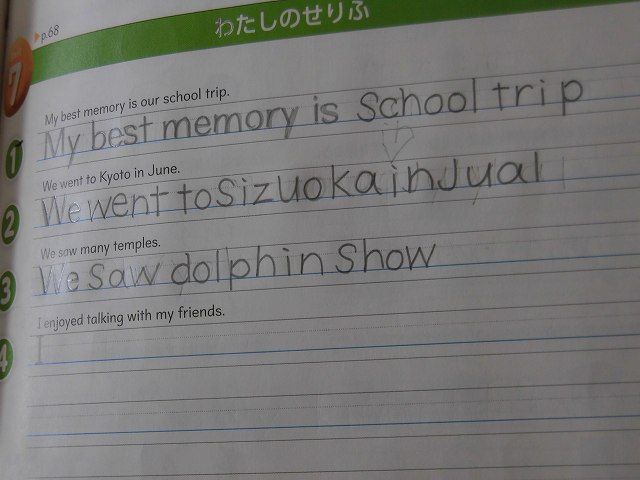 p.68
わたしのせりふ
7
My best memory is our school trip.
1 My best memory is School trip
We went to Kyoto in June.
2 We went to Sizuoka in Jual
We saw many temples.
3 We saw dolphin Show
I enjoyed talking with my friends.
4 I